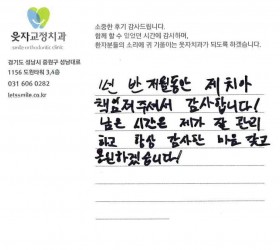 윳자교정치과
smile orthodontic clinic
경기도 성남시 중원구 성남대로
1156 도원타워 3,4층
031 606 0282
letssmile.co.kr
소중한 후기 감사드립니다.
함께 할 수 있었던 시간에 감사하며,
환자분들의 소리에 귀 기울이는 윳자교정치과가 되도록 하겠습니다.
1년 반 개월동안 제 치아
책임져주셔서 감사합니다!
남은 시간은 제가 잘 관리
하고 항상 감사한 마음 갖고
응원하겠습니다!